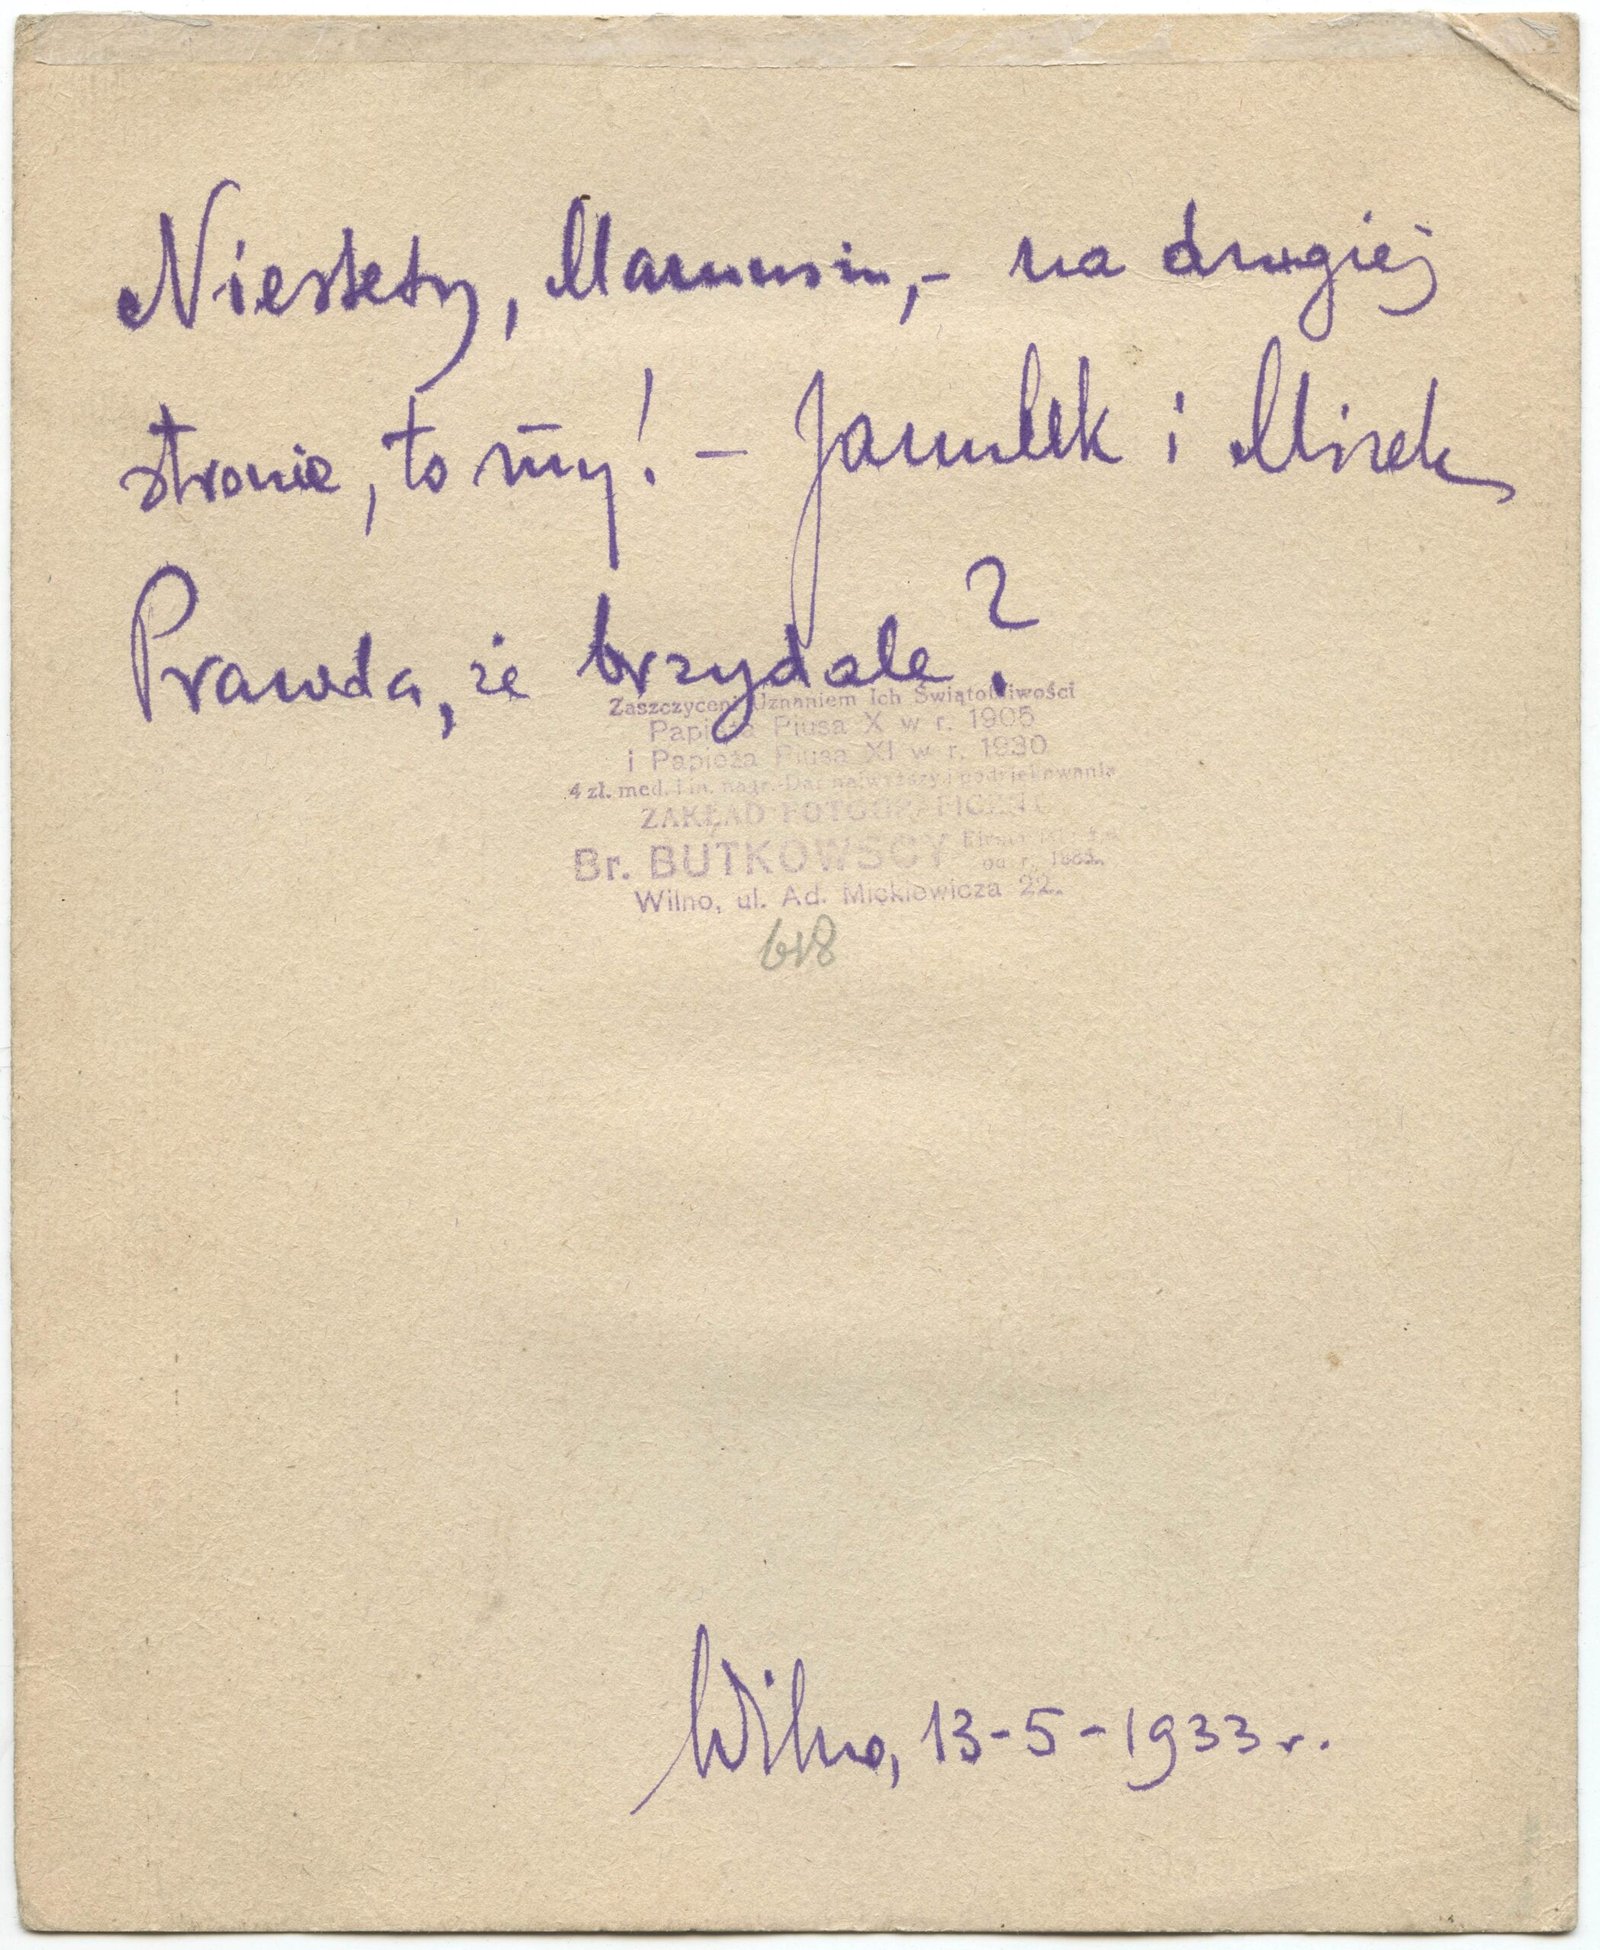 Niestety, Mamusiu,- na drugiej
stronie, to my! – Janulek i Mirek
Prawda, że brzydale?
Zaszczyceni Uznaniem Ich Świątobliwości
Papieża Piusa X w r. 1905
i Papieża Piusa XI w r. 1930
4 zł. med. i in. nagr. Dar najwyższy i podziękowania
ZAKŁAD FOTOGRAFICZNY
Br. BUTKOWSCY Firma
od r.
Wilno, ul. Ad. Mickiewicza 22.
618
Wilno, 13-5-1933 r.